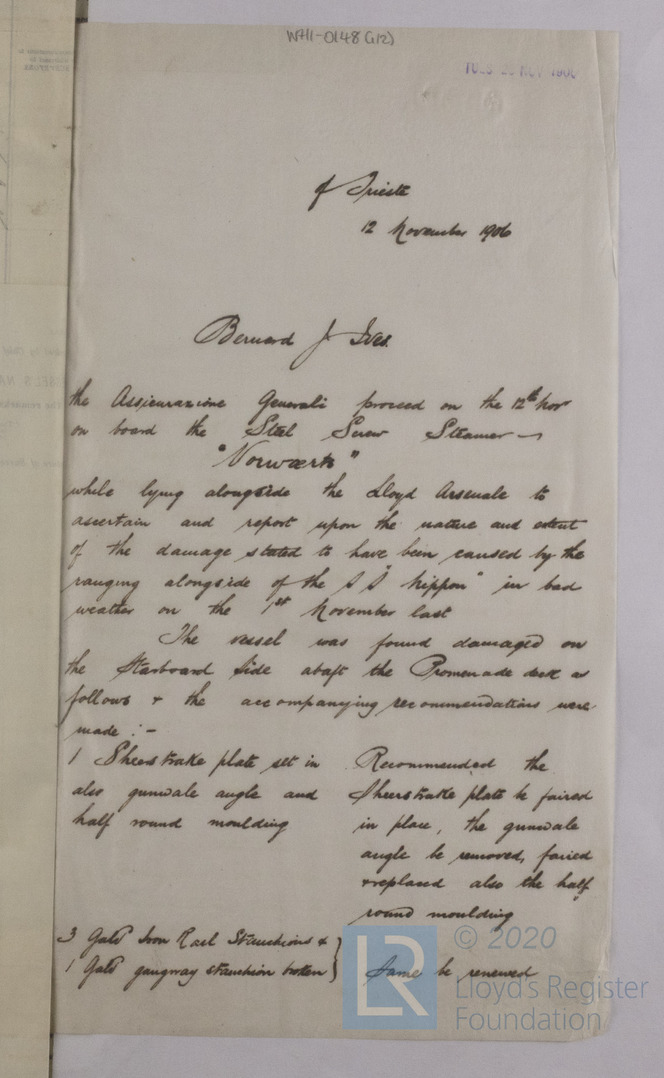 W711-0148 (1/2)
TUES 20 NOV 1906
of Trieste
12 November 1906
Bernard J Ives
the Assicurazione Generali proceed on the 12th Nov
on board the Steel Screw Steamer
"Vorwærts"
while lying alongside the Lloyd Arsenale to
ascertain and report upon the nature and extent
of the damage stated to have been caused by the
ranging alongside of the SS "Nippon" in bad
weather on the 1st November last
The vessel was found damaged on
the Starboard Side abaft the Promenade deck as
follows & the accompanying recommendations were
made :-
1 Sheerstrake plate set in
also gunwale angle and
half round moulding
Recommended the
Sheerstrake plate be faired
in place, the gunwale
angle be removed, faired
& replaced also the half
round moulding
3 Galvd Iron Rail Stanchions &
1 Galvd gangway stanchion broken
Same be renewed
LR
© 2020
Lloyd's Register
Foundation